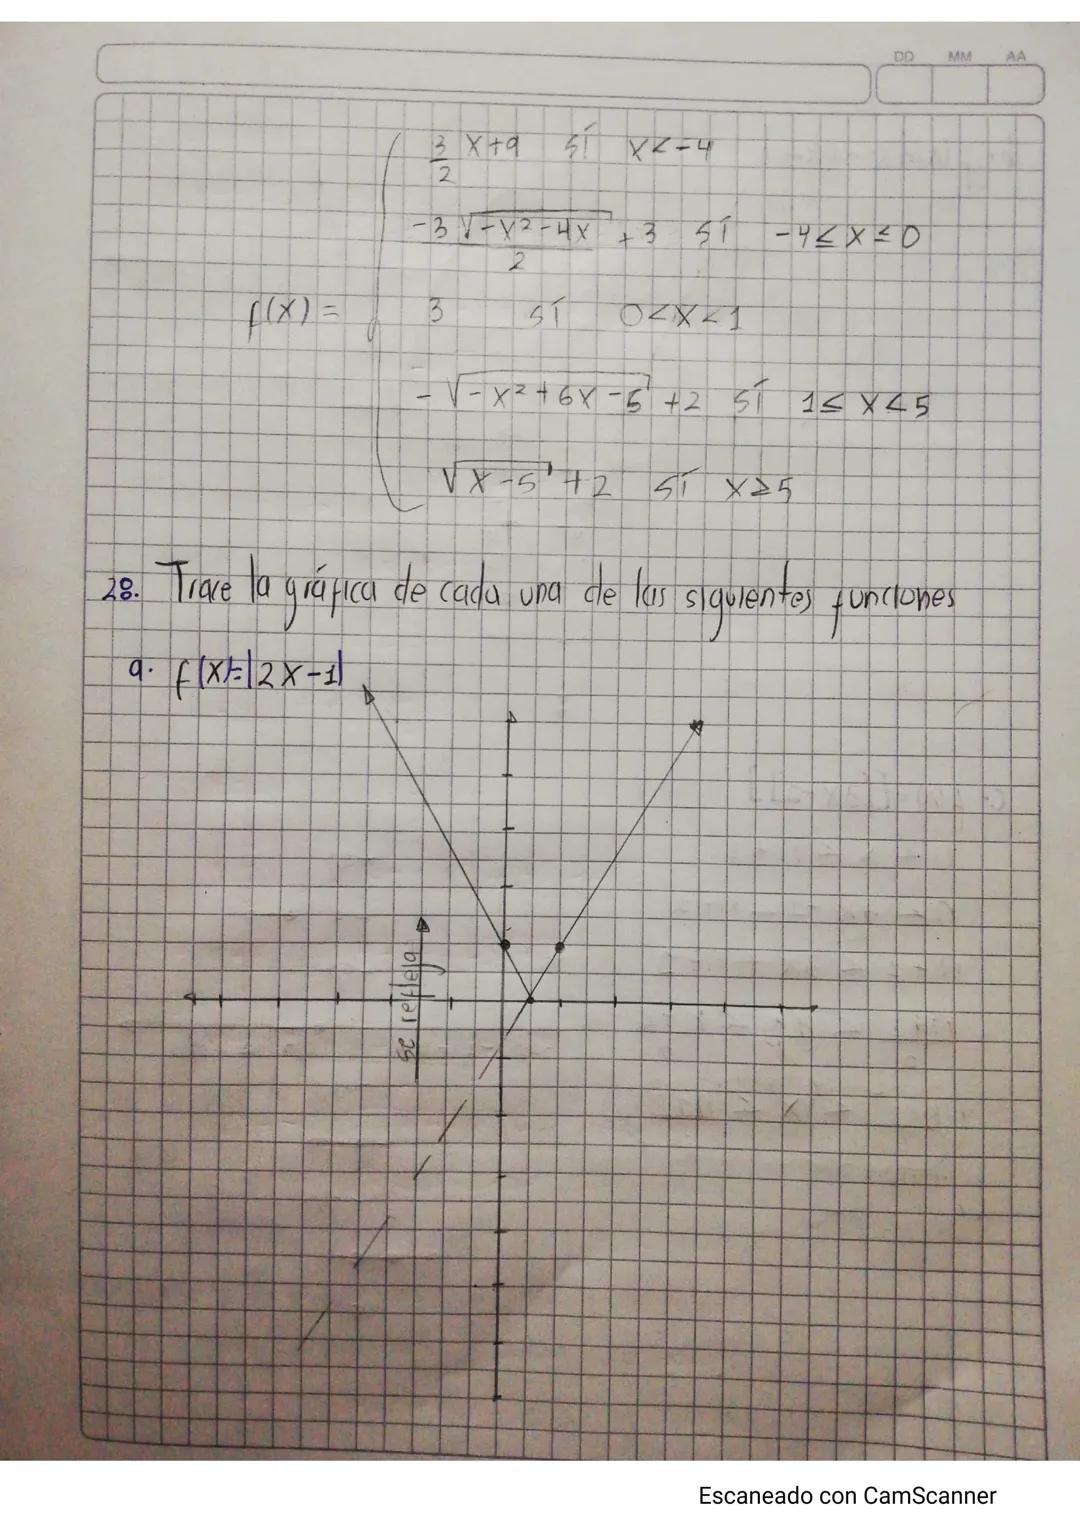 DD MM AA
3/2 x+9 sí x<-4
-3√-x²-4x/2 +3 sí -4≤x≤0
f(x)= 3 sí 0<x<1
-√-x²+6x-5 +2 sí 1≤x<5
√x-5 +2 sí x≥5
28. Trace la gráfica de cada una de las siguientes funciones
a. f(x)=|2x-1|
se refleja
Escaneado con CamScanner